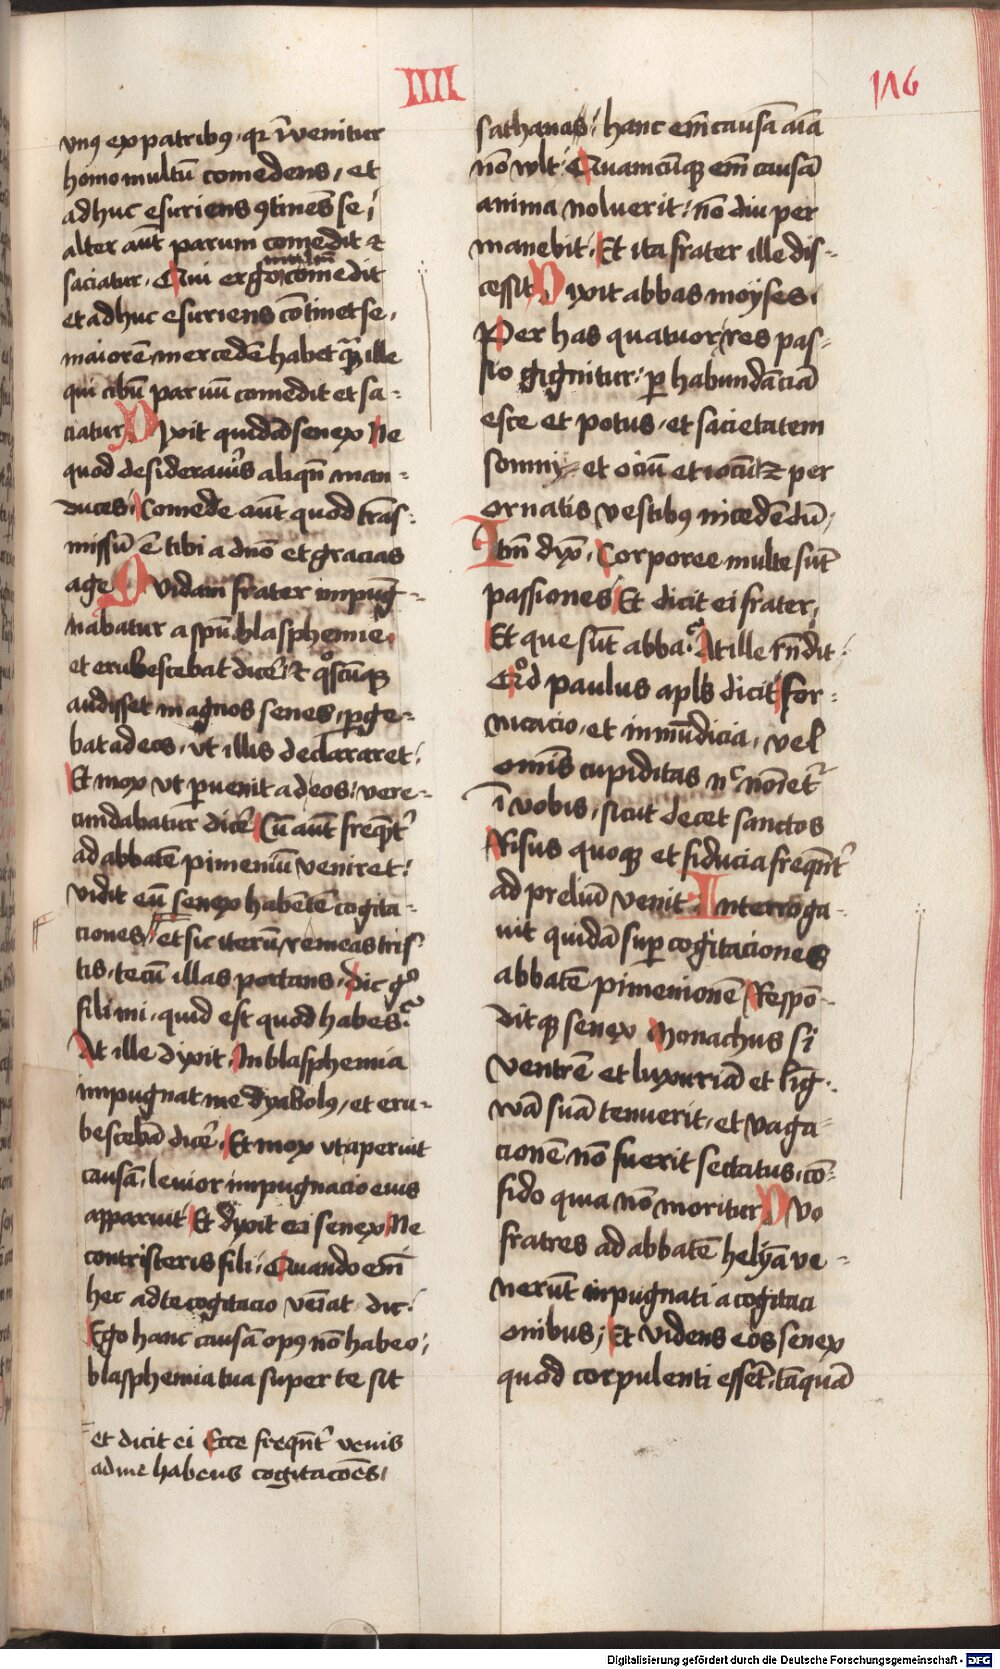 IIII
116
vnꝰ ex patribꝰ · qr īvenitur
homo multū comedens / et
adhuc esuriens ꝯtinēs se /
alter aūt parum comedit et
saciatur · Qui ergo multum comedit
et adhuc esuriens cōtinet se ·
maiorē mercedē habet qᷓꝫ ille
qui cibū paruū comedit et sa-
ciatur Dixit quidā senex Ne
quod desideraūis aliqn̄ man-
duces · Comede aūt quod trās-
missū ē tibi a dn̄o et gracias
age Quidam frater impug-
nabatur a spū blasphemie ·
et erubescebat dicē et qͦscūqꝫ
audisset magnos senes / ꝑge-
bat ad eos · vt illis declararet :
Et mox vt ꝑuenit ad eos / vere-
cundabatur dicē Cū aūt freqn̄t
ad abbatē pimeniū veniret :
vidit eū senex habētē cogita-
ciones / et sic iterū remeas tris
tis · tecū illas portans · dic gͦ
fili mi · quid est quod habes ?
At ille dixit · In blasphemia
impugnat me dyabolꝰ / et eru-
bescebā dicē · Et mox vt aperuit
causā · leuior impugnacio eius
apparuit Et dyxit ei senex Ne
contristeris fili · Quando em̄
hec ad te cogitacio veīat · dic :
Ego hanc causā opꝰ nō habeo ·
blasphemia tua super te sit
et dicit ei Ecce freqn̄t venis
ad me habens cogitacōes ·
sathanas : hanc em̄ causā aīa
nō wlt · Quamcūqꝫ em̄ causā
anima noluerit : nō diu per
manebit · Et ita frater ille dis-
cessit Dixit abbas moyses ·
Per has quatuor res pas-
sio gignitur : ꝑ habundāciā
esce et potus · et sacietatem
somny · et ociū et iocū et per
ornatis vestibꝰ incedēdū ·
Itm̄ dyx · Corporee multe sūt
passiones Et dicit ei frater ·
Et que sūt abba ? At ille rn̄dit :
Qͦd paulus apls dicit for-
nicacio · et inmūdicia · vel
omīs cupiditas nͨ noīet
ī vobis · sicut decet sanctos
Risus quoqꝫ et fiducia freqn̄t
ad preliū venit Interroga-
uit quidā suꝑ cogitaciones
abbatē pimenionē Respō-
ditqꝫ senex Monachus si
ventrē et luxuriā et lig-
wā suā tenuerit · et vaga
cionē nō fuerit sectatus · cō-
fido quia nō moritur Duo
fratres ad abbatē helyā ve-
nerūt inpugnati a cogitaci
onibus ; Et videns eos senex
quod corpulenti essēt · tāquā
Digitalisierung gefördert durch die Deutsche Forschungsgemeinschaft - DFG